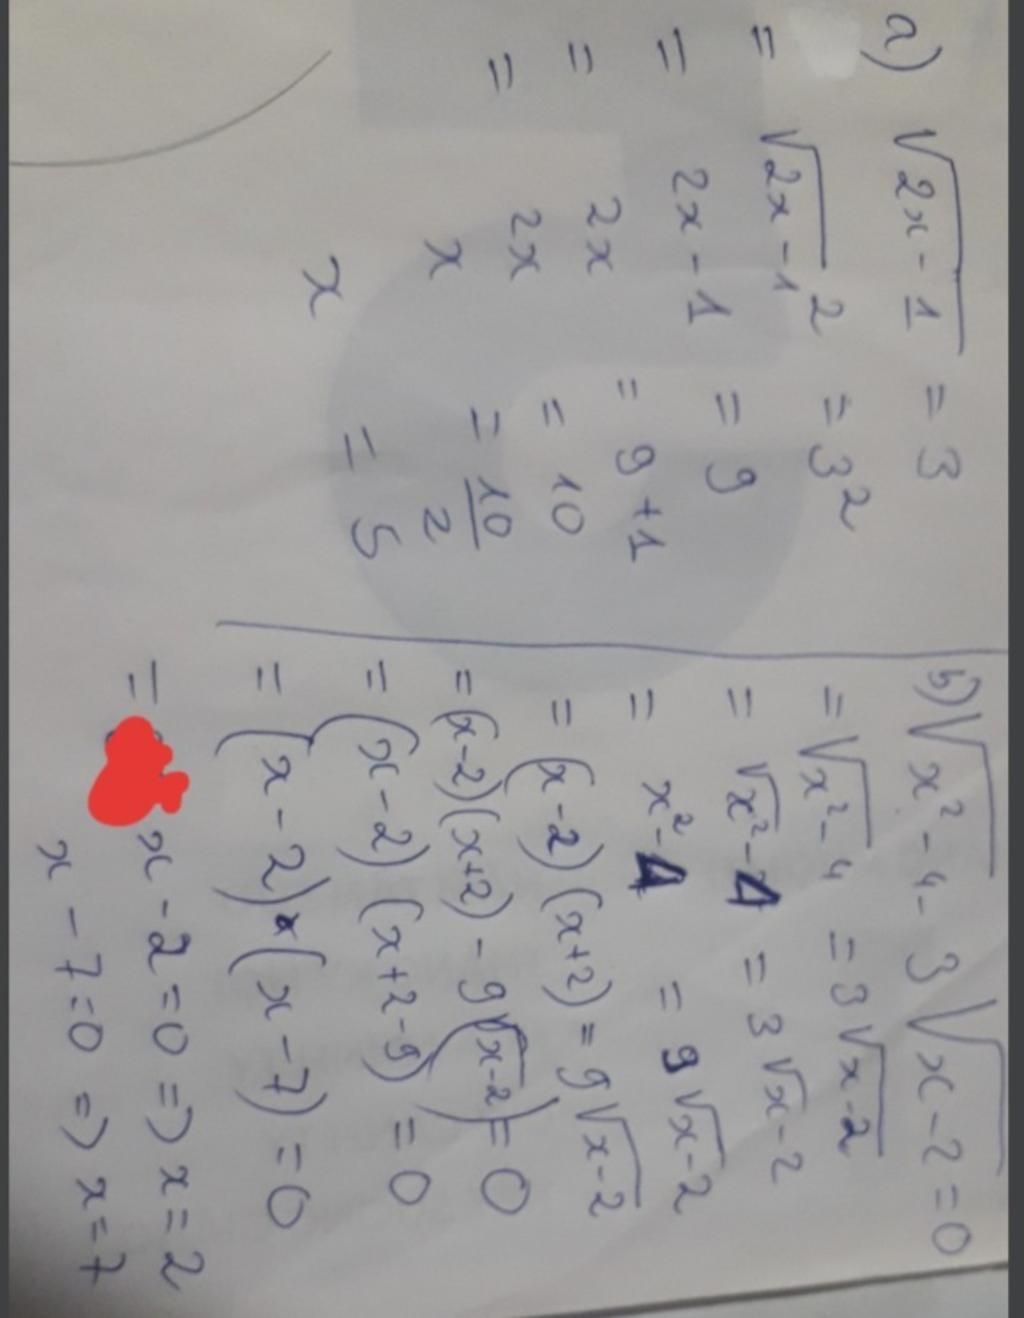 a) √2x-1 = 3
= √2x-1² = 3²
= 2x-1 = 9
= 2x = 9+1
= 2x = 10
x = 10/2
x = 5
b) √x²-4 - 3√x-2 = 0
= √x²-4 = 3√x-2
= √x²-4 = 3√x-2
= x²-4 = 9√x-2
= (x-2)(x+2) = 9√x-2
= (x-2)(x+2) - 9(√x-2) = 0
= (x-2)(x+2-9) = 0
= (x-2)*(x-7) = 0
= x-2=0 => x=2
x-7=0 => x=7